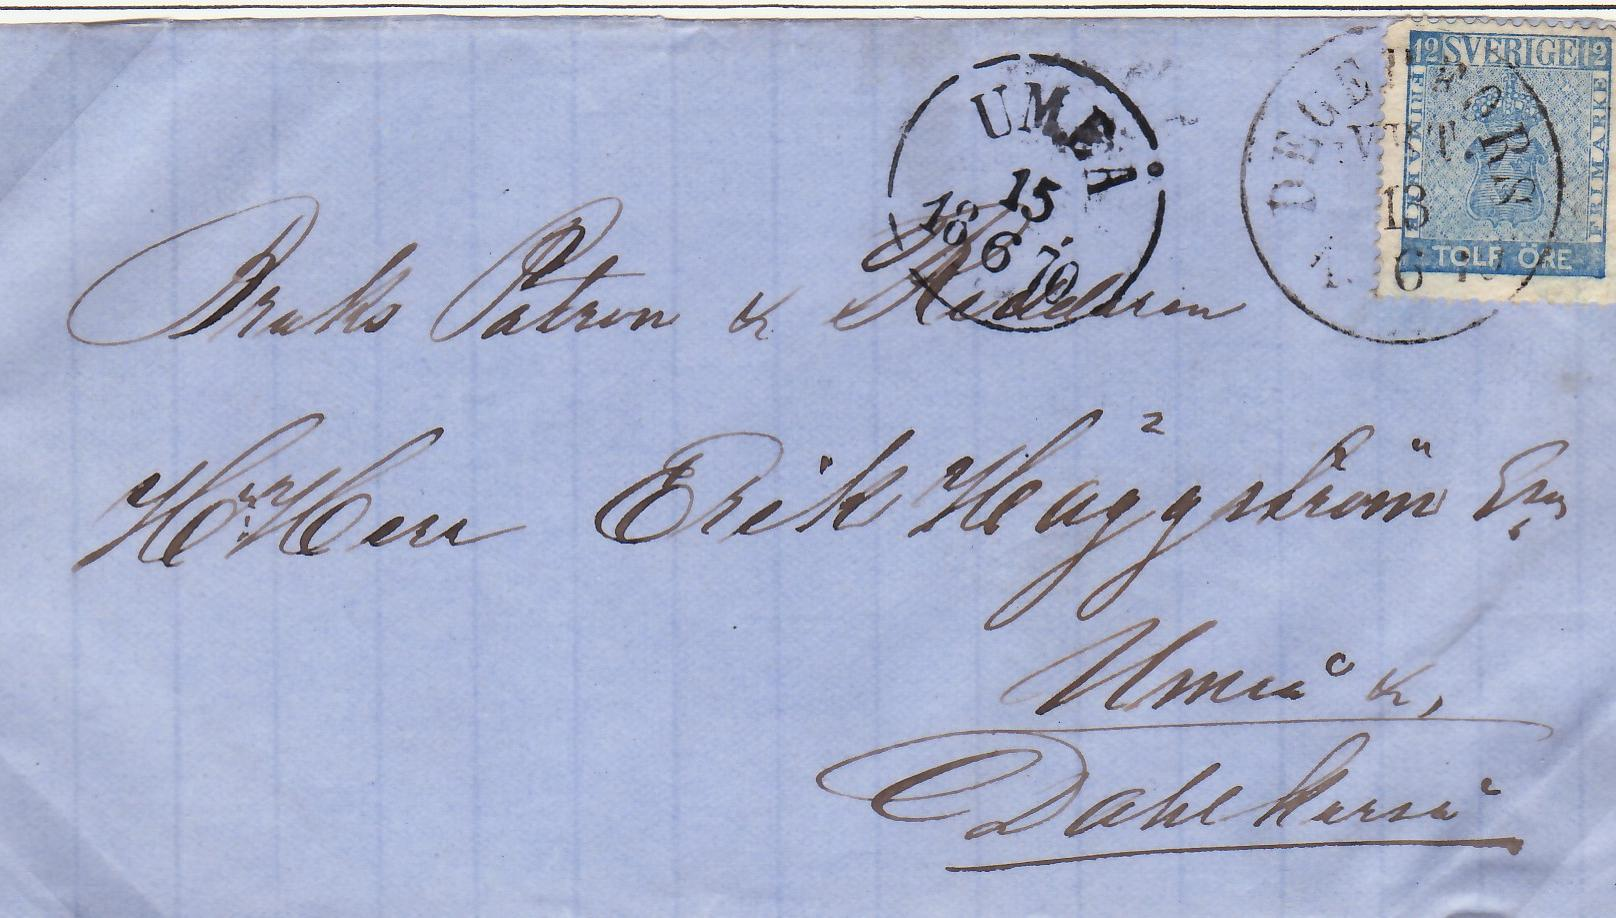 12 SVERIGE 12
FRIMÄRKE
FRIMÄRKE
TOLF ÖRE
DEGERFORS
13
6
UMEÅ
15
18 6 70
Bruks Patron & Riddaren
H.r Herr Erik Häggström Esq
Umeå &,
Dahlkarså